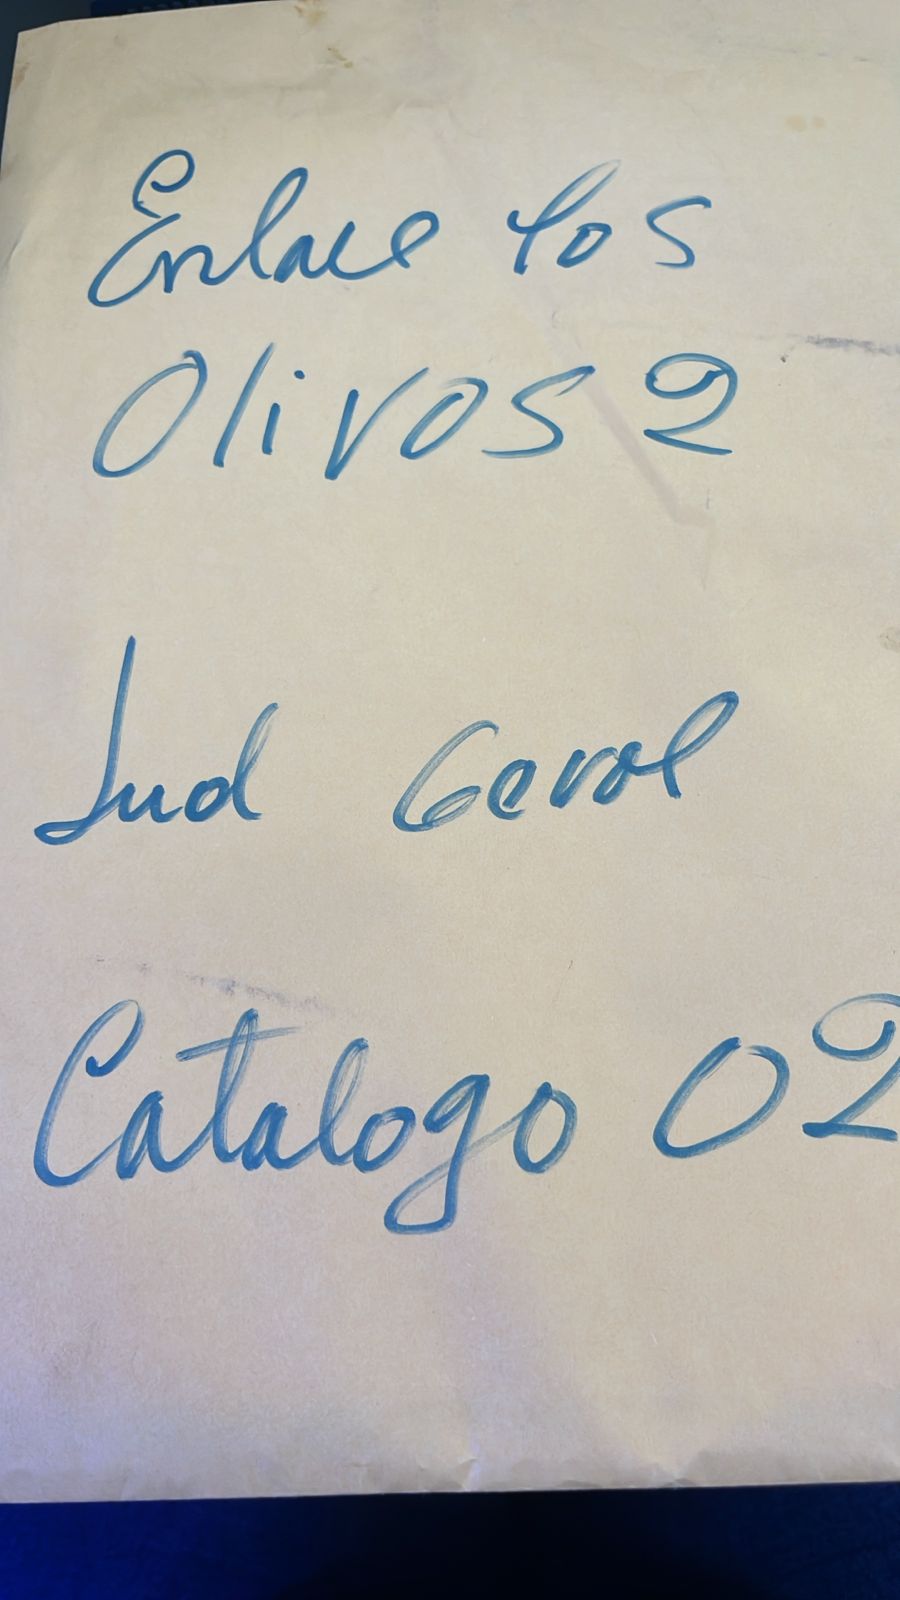 Enlace los
Olivos 2
Jud Geral
Catalogo 02